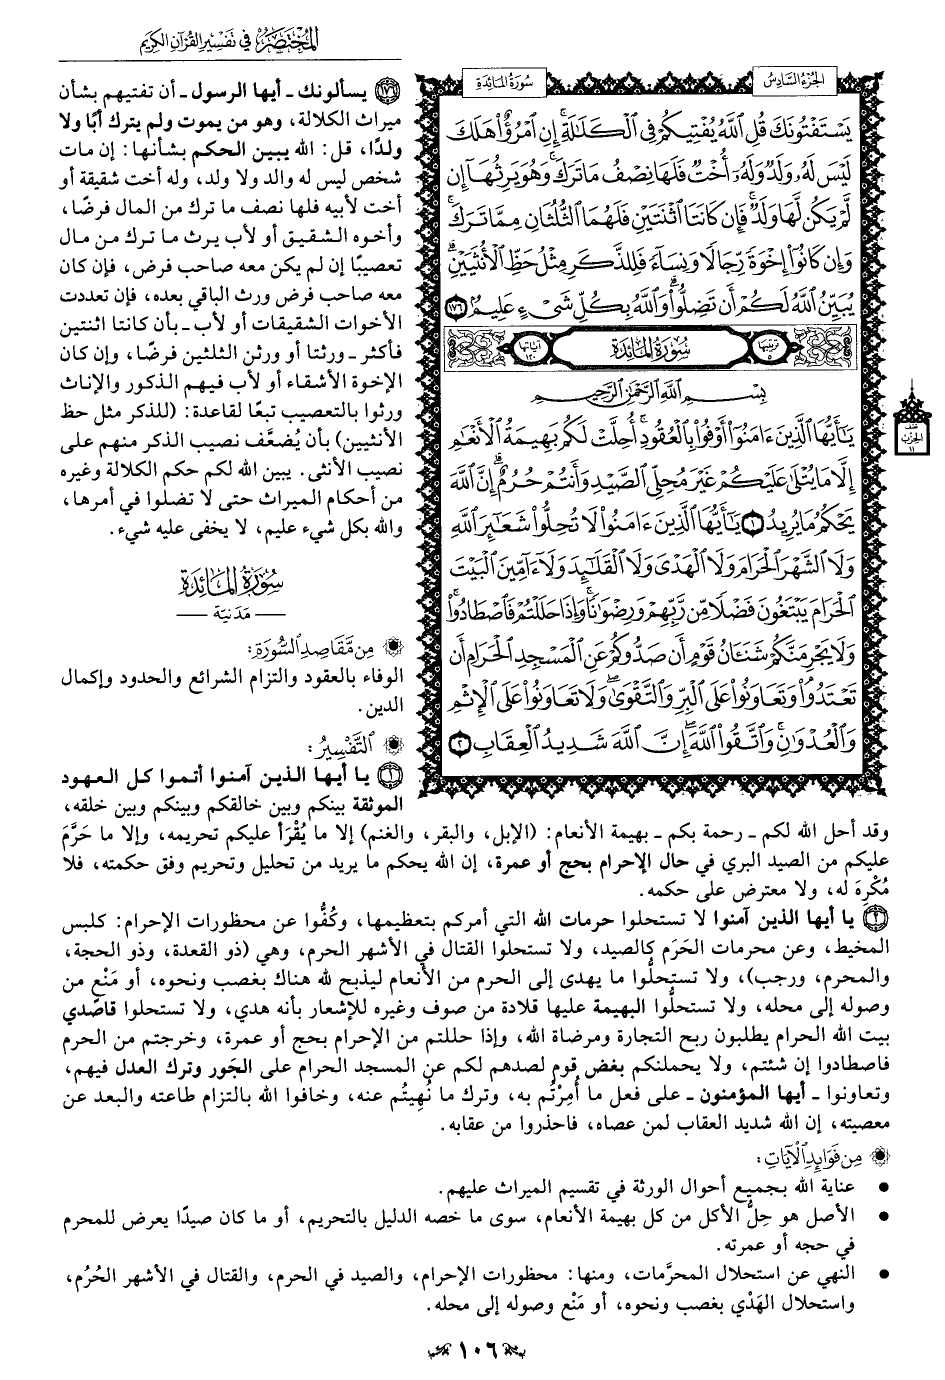 المختصر في تفسير القرآن الكريم
الجزء السادس
سورة المائدة
يَسْتَفْتُونَكَ قُلِ ٱللَّهُ يُفْتِيكُمْ فِى ٱلْكَلَٰلَةِ ۚ إِنِ ٱمْرُؤٌا۟ هَلَكَ
لَيْسَ لَهُۥ وَلَدٌ وَلَهُۥٓ أُخْتٌ فَلَهَا نِصْفُ مَا تَرَكَ ۚ وَهُوَ يَرِثُهَآ إِن
لَّمْ يَكُن لَّهَا وَلَدٌ ۚ فَإِن كَانَتَا ٱثْنَتَيْنِ فَلَهُمَا ٱلثُّلُثَانِ مِمَّا تَرَكَ ۚ
وَإِن كَانُوٓا۟ إِخْوَةً رِّجَالًا وَنِسَآءً فَلِلذَّكَرِ مِثْلُ حَظِّ ٱلْأُنثَيَيْنِ ۗ
يُبَيِّنُ ٱللَّهُ لَكُمْ أَن تَضِلُّوا۟ ۗ وَٱللَّهُ بِكُلِّ شَىْءٍ عَلِيمٌۢ ١٧٦
ترتيبها ٥ سورة المائدة آياتها ١٢٠
بِسْمِ ٱللَّهِ ٱلرَّحْمَٰنِ ٱلرَّحِيمِ
يَٰٓأَيُّهَا ٱلَّذِينَ ءَامَنُوٓا۟ أَوْفُوا۟ بِٱلْعُقُودِ ۚ أُحِلَّتْ لَكُم بَهِيمَةُ ٱلْأَنْعَٰمِ
إِلَّا مَا يُتْلَىٰ عَلَيْكُمْ غَيْرَ مُحِلِّى ٱلصَّيْدِ وَأَنتُمْ حُرُمٌ ۗ إِنَّ ٱللَّهَ
يَحْكُمُ مَا يُرِيدُ ١ يَٰٓأَيُّهَا ٱلَّذِينَ ءَامَنُوا۟ لَا تُحِلُّوا۟ شَعَٰٓئِرَ ٱللَّهِ
وَلَا ٱلشَّهْرَ ٱلْحَرَامَ وَلَا ٱلْهَدْىَ وَلَا ٱلْقَلَٰٓئِدَ وَلَآ ءَآمِّينَ ٱلْبَيْتَ
ٱلْحَرَامَ يَبْتَغُونَ فَضْلًا مِّن رَّبِّهِمْ وَرِضْوَٰنًا ۚ وَإِذَا حَلَلْتُمْ فَٱصْطَادُوا۟ ۚ
وَلَا يَجْرِمَنَّكُمْ شَنَـَٔانُ قَوْمٍ أَن صَدُّوكُمْ عَنِ ٱلْمَسْجِدِ ٱلْحَرَامِ أَن
تَعْتَدُوا۟ ۘ وَتَعَاوَنُوا۟ عَلَى ٱلْبِرِّ وَٱلتَّقْوَىٰ ۖ وَلَا تَعَاوَنُوا۟ عَلَى ٱلْإِثْمِ
وَٱلْعُدْوَٰنِ ۚ وَٱتَّقُوا۟ ٱللَّهَ ۖ إِنَّ ٱللَّهَ شَدِيدُ ٱلْعِقَابِ ٢
نصف
الحزب
١١
١٧٦ يسألونك ـ أيها الرسول ـ أن تفتيهم بشأن
ميراث الكلالة، وهو من يموت ولم يترك أبًا ولا
ولدًا، قل: الله يبين الحكم بشأنها: إن مات
شخص ليس له والد ولا ولد، وله أخت شقيقة أو
أخت لأبيه فلها نصف ما ترك من المال فرضًا،
وأخوه الشقيق أو لأب يرث ما ترك من مال
تعصيبًا إن لم يكن معه صاحب فرض، فإن كان
معه صاحب فرض ورث الباقي بعده، فإن تعددت
الأخوات الشقيقات أو لأب ـ بأن كانتا اثنتين
فأكثر ـ ورثتا أو ورثن الثلثين فرضًا، وإن كان
الإخوة الأشقاء أو لأب فيهم الذكور والإناث
ورثوا بالتعصيب تبعًا لقاعدة: (للذكر مثل حظ
الأنثيين) بأن يُضعَّف نصيب الذكر منهم على
نصيب الأنثى. يبين الله لكم حكم الكلالة وغيره
من أحكام الميراث حتى لا تضلوا في أمرها،
والله بكل شيء عليم، لا يخفى عليه شيء.
سورة المائدة
— مدنية —
من مقاصد السورة:
الوفاء بالعقود والتزام الشرائع والحدود وإكمال
الدين.
التفسير:
١ يا أيها الذين آمنوا أتموا كل العهود
الموثقة بينكم وبين خالقكم وبينكم وبين خلقه،
وقد أحل الله لكم ـ رحمة بكم ـ بهيمة الأنعام: (الإبل، والبقر، والغنم) إلا ما يُقْرَأ عليكم تحريمه، وإلا ما حَرَّمَ
عليكم من الصيد البري في حال الإحرام بحج أو عمرة، إن الله يحكم ما يريد من تحليل وتحريم وفق حكمته، فلا
مُكْرِهَ له، ولا معترض على حكمه.
٢ يا أيها الذين آمنوا لا تستحلوا حرمات الله التي أمركم بتعظيمها، وكُفُّوا عن محظورات الإحرام: كلبس
المخيط، وعن محرمات الحَرَم كالصيد، ولا تستحلوا القتال في الأشهر الحرم، وهي (ذو القعدة، وذو الحجة،
والمحرم، ورجب)، ولا تستحلُّوا ما يهدى إلى الحرم من الأنعام ليذبح لله هناك بغصب ونحوه، أو مَنْع من
وصوله إلى محله، ولا تستحلُّوا البهيمة عليها قلادة من صوف وغيره للإشعار بأنه هدي، ولا تستحلوا قاصدي
بيت الله الحرام يطلبون ربح التجارة ومرضاة الله، وإذا حللتم من الإحرام بحج أو عمرة، وخرجتم من الحرم
فاصطادوا إن شئتم، ولا يحملنكم بغض قوم لصدهم لكم عن المسجد الحرام على الجَور وترك العدل فيهم،
وتعاونوا ـ أيها المؤمنون ـ على فعل ما أُمِرْتُم به، وترك ما نُهِيتُم عنه، وخافوا الله بالتزام طاعته والبعد عن
معصيته، إن الله شديد العقاب لمن عصاه، فاحذروا من عقابه.
من فوائد الآيات:
• عناية الله بجميع أحوال الورثة في تقسيم الميراث عليهم.
• الأصل هو حِلُّ الأكل من كل بهيمة الأنعام، سوى ما خصه الدليل بالتحريم، أو ما كان صيدًا يعرض للمحرم
في حجه أو عمرته.
• النهي عن استحلال المحرَّمات، ومنها: محظورات الإحرام، والصيد في الحرم، والقتال في الأشهر الحُرُم،
واستحلال الهَدْي بغصب ونحوه، أو مَنْع وصوله إلى محله.
١٠٦